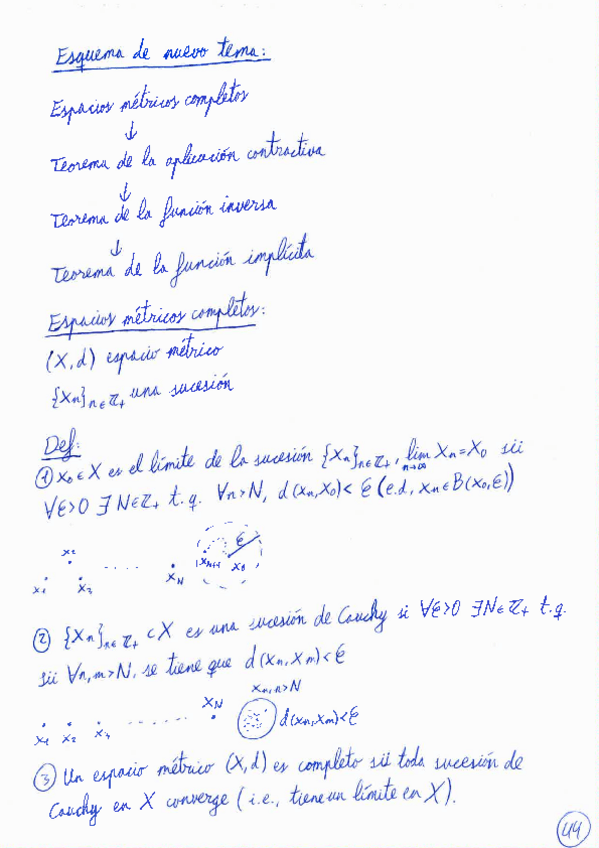 Esquema de nuevo tema:
Espacios métricos completos
↓
Teorema de la aplicación contractiva
↓
Teorema de la función inversa
↓
Teorema de la función implícita
Espacios métricos completos:
(X,d) espacio métrico
{Xn}n∈ℤ+ una sucesión
Def:
① x₀∈X es el límite de la sucesión {Xn}n∈ℤ+, lim n→∞ Xn=X₀ sii
∀ε>0 ∃N∈ℤ+ t.q. ∀n>N, d(xn,x₀)<ε (e.d, xn∈B(x₀,ε))
x₁ x₂ x₃ ..... xN xN+1 x₀ ε
② {Xn}n∈ℤ+ ⊂X es una sucesión de Cauchy si ∀ε>0 ∃N∈ℤ+ t.q.
sii ∀n,m>N, se tiene que d(xn,xm)<ε
x₁ x₂ x₃ ..... xN xn,n>N d(xn,xm)<ε
③ Un espacio métrico (X,d) es completo sii toda sucesión de
Cauchy en X converge (i.e., tiene un límite en X).
44